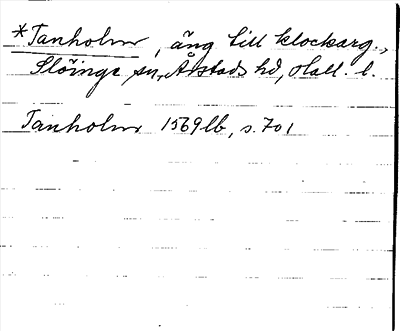 *Tanholm, äng till klockarg.,
Slöinge sn, Årstads hd, Hall. l.
Tanholm 1569 lb, s. 701